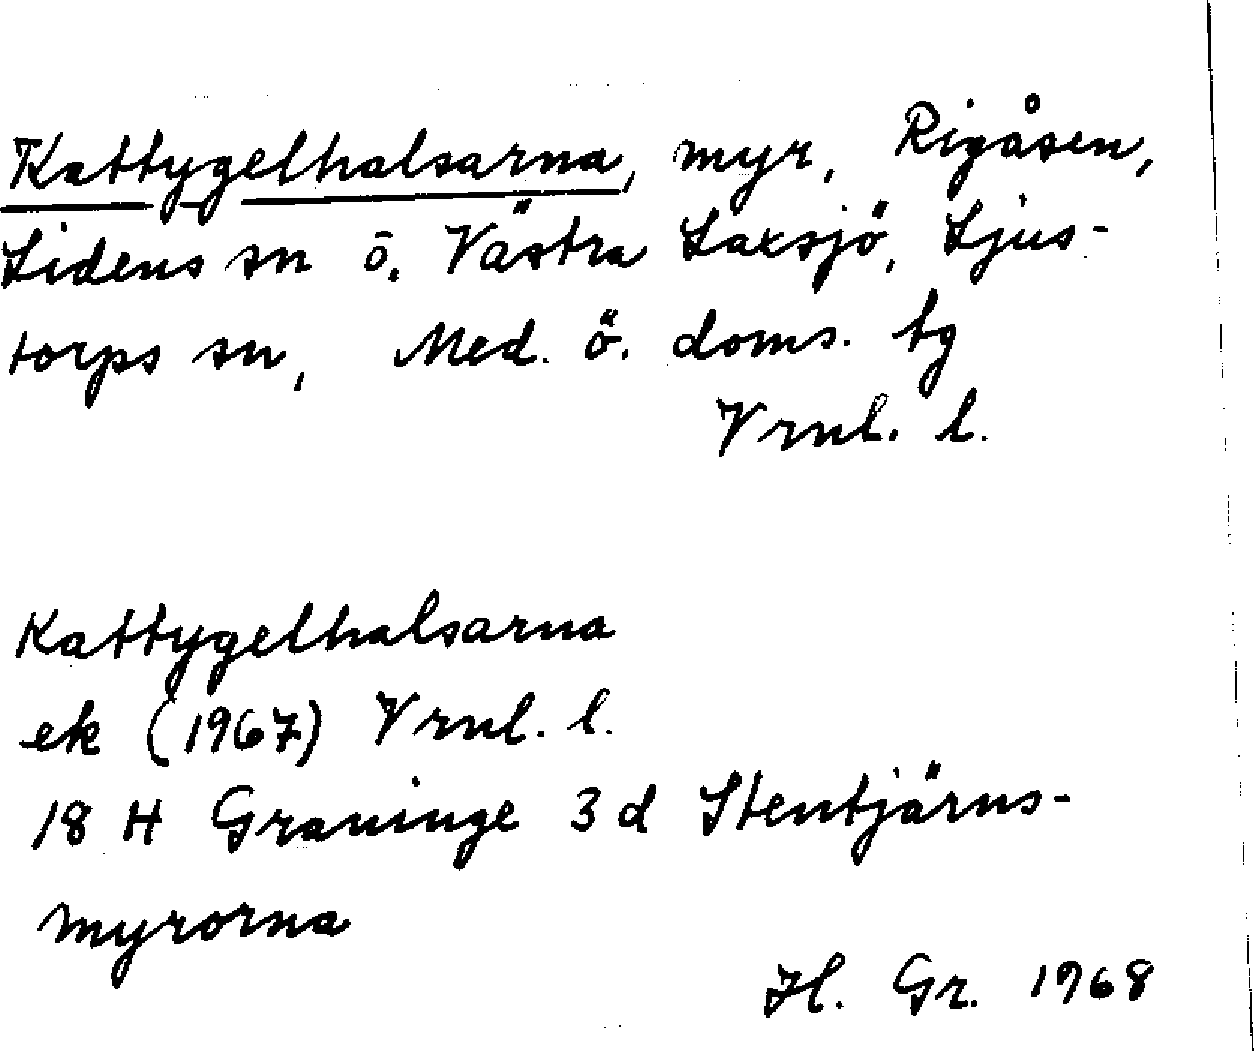 Kattygelhalsarna, myr, Rigåsen,
Lidens sn o. Västra Laxsjö, Ljus-
torps sn, Med. ö. doms. tg
Vrnl. l.
Kattygelhalsarna
ek (1967) Vrnl. l.
18 H Graninge 3 d Stentjärns-
myrorna
Hl. Gr. 1968